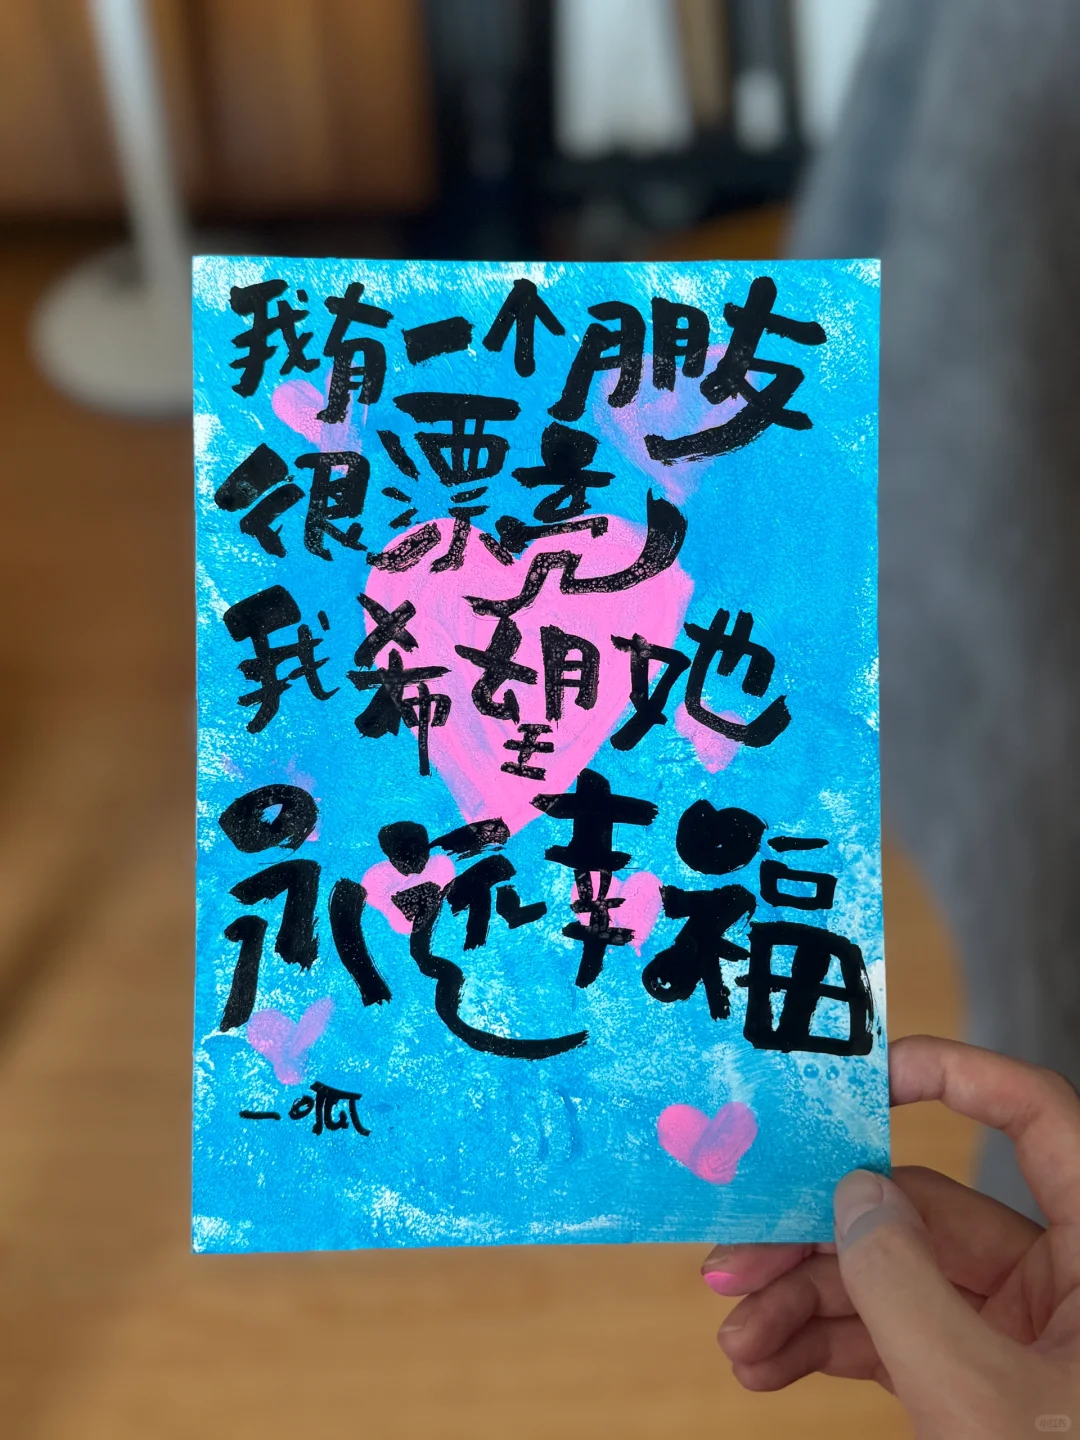 我有一个朋友
很漂亮
我希望她
永远幸福
一呱
小红书